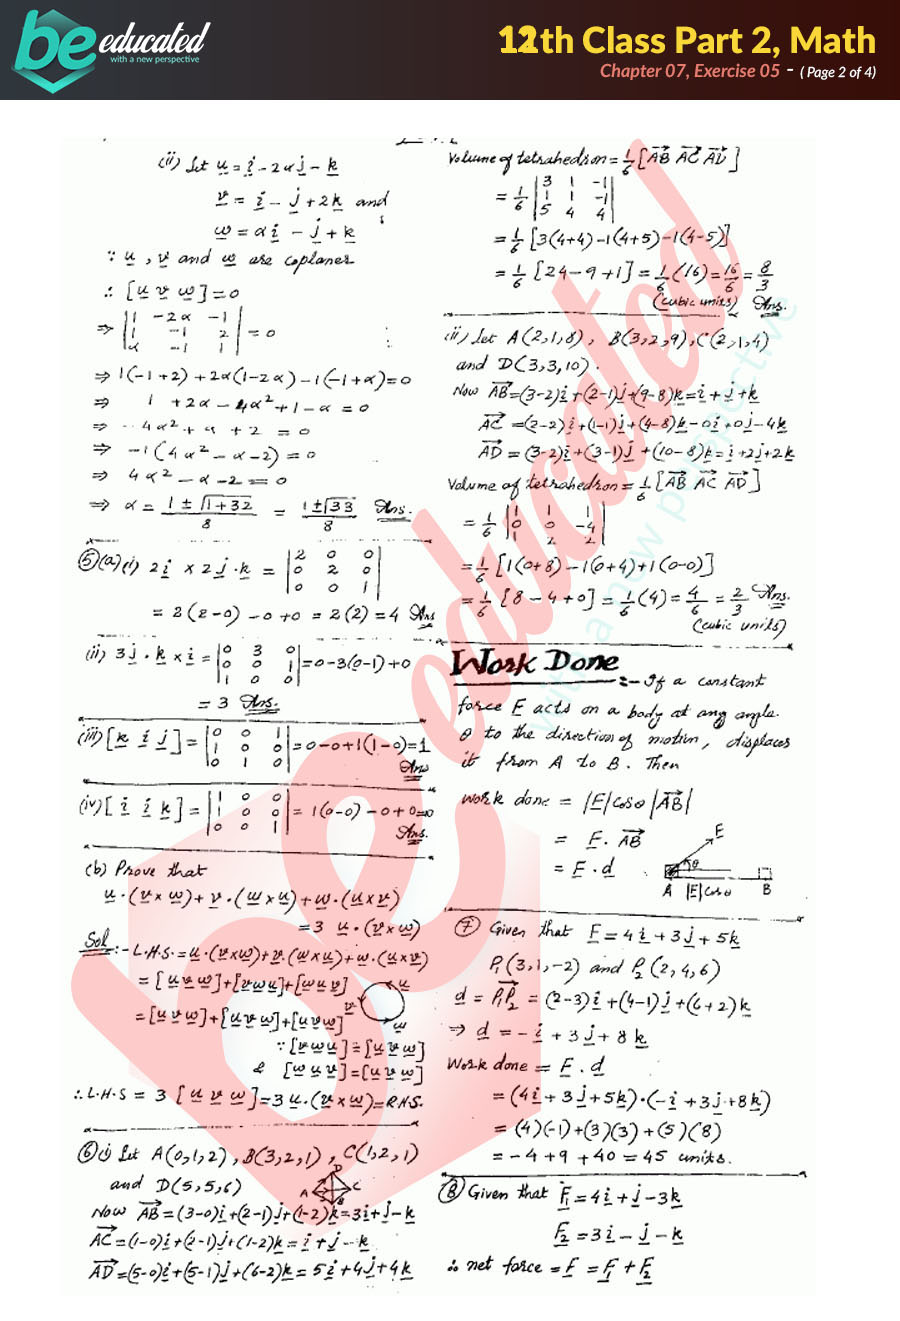 be educated
with a new perspective
12th Class Part 2, Math
Chapter 07, Exercise 05 - ( Page 2 of 4)
(ii) Let u = i - 2αj - k
v = i - j + 2k and
w = αi - j + k
∵ u, v and w are coplaner
∴ [u v w] = 0
⇒ |1 -2α -1|
|1 -1 2| = 0
|α -1 1|
⇒ 1(-1+2) + 2α(1-2α) - 1(-1+α) = 0
⇒ 1 + 2α - 4α² + 1 - α = 0
⇒ -4α² + α + 2 = 0
⇒ -1(4α² - α - 2) = 0
⇒ 4α² - α - 2 = 0
⇒ α = (1 ± √(1+32))/8 = (1 ± √33)/8 Ans.
⑤(a)(i) 2i × 2j · k = |2 0 0|
|0 2 0|
|0 0 1|
= 2(2-0) - 0 + 0 = 2(2) = 4 Ans
(ii) 3j · k × i = |0 3 0|
|0 0 1| = 0-3(0-1)+0
|1 0 0|
= 3 Ans.
(iii) [k i j] = |0 0 1|
|1 0 0| = 0-0+1(1-0)=1
|0 1 0|
Ans
(iv) [i i k] = |1 0 0|
|1 0 0| = 1(0-0)-0+0=0
|0 0 1|
Ans.
(b) Prove that
u·(v×w) + v·(w×u) + w·(u×v)
= 3 u·(v×w)
Sol:- L.H.S. = u·(v×w)+v·(w×u)+w·(u×v)
= [u v w]+[v w u]+[w u v]
= [u v w]+[u v w]+[u v w]
u
v
w
∵ [v w u] = [u v w]
& [w u v] = [u v w]
∴ L.H.S = 3 [u v w] = 3 u·(v×w) = R.H.S.
⑥(i) Let A(0,1,2), B(3,2,1), C(1,2,1)
and D(5,5,6)
D
A C
B
Now AB = (3-0)i+(2-1)j+(1-2)k = 3i+j-k
AC = (1-0)i+(2-1)j+(1-2)k = i+j-k
AD = (5-0)i+(5-1)j+(6-2)k = 5i+4j+4k
Volume of tetrahedron = 1/6 [AB AC AD]
= 1/6 |3 1 -1|
|1 1 -1|
|5 4 4|
= 1/6 [3(4+4)-1(4+5)-1(4-5)]
= 1/6 [24-9+1] = 1/6 (16) = 16/6 = 8/3
(cubic units) Ans.
(ii) Let A(2,1,8), B(3,2,9), C(2,1,4)
and D(3,3,10).
Now AB = (3-2)i+(2-1)j+(9-8)k = i+j+k
AC = (2-2)i+(1-1)j+(4-8)k = 0i+0j-4k
AD = (3-2)i+(3-1)j+(10-8)k = i+2j+2k
Volume of tetrahedron = 1/6 [AB AC AD]
= 1/6 |1 1 1|
|0 0 -4|
|1 2 2|
= 1/6 [1(0+8)-1(0+4)+1(0-0)]
= 1/6 [8-4+0] = 1/6 (4) = 4/6 = 2/3 Ans.
(cubic units)
Work Done:- If a constant
force F acts on a body at any angle
θ to the direction of motion, displaces
it from A to B. Then
work done = |F|cosθ |AB|
= F · AB
= F · d
F
θ
A |F|cosθ B
⑦ Given that F = 4i + 3j + 5k
P₁(3,1,-2) and P₂(2,4,6)
d = P₁P₂ = (2-3)i+(4-1)j+(6+2)k
⇒ d = -i + 3j + 8k
Work done = F · d
= (4i+3j+5k)·(-i+3j+8k)
= (4)(-1)+(3)(3)+(5)(8)
= -4+9+40 = 45 units.
⑧ Given that F₁ = 4i + j - 3k
F₂ = 3i - j - k
∴ net force = F = F₁ + F₂
be educated
with a new perspective